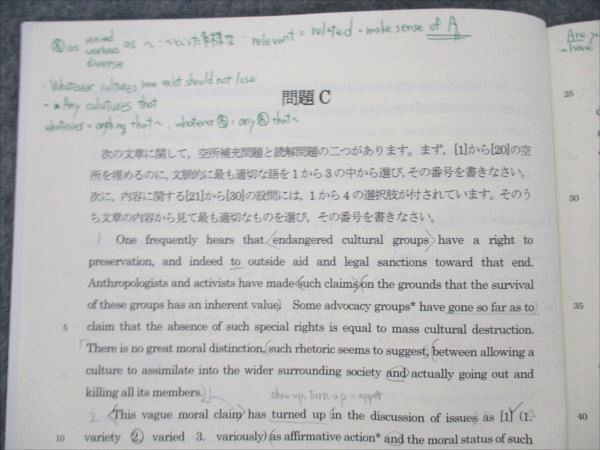 as varied
various
diverse
as ~ ~といった多様な relevant = related = make sense of A
- Whatever cultures now exist should not lose
- Any culutures that
whatever = anything that ~. whatever = any that ~
Are
-have
25
30
35
40
問題 C
次の文章に関して，空所補充問題と読解問題の二つがあります。まず，[1]から[20]の空
所を埋めるのに，文脈的に最も適切な語を1から3の中から選び，その番号を書きなさい。
次に，内容に関する[21]から[30]の設問には，1から4の選択肢が付されています。そのう
ち文章の内容から見て最も適切なものを選び，その番号を書きなさい。
1 One frequently hears that endangered cultural groups have a right to
preservation, and indeed to outside aid and legal sanctions toward that end.
Anthropologists and activists have made such claims on the grounds that the survival
of these groups has an inherent value. Some advocacy groups* have gone so far as to
5 claim that the absence of such special rights is equal to mass cultural destruction.
There is no great moral distinction, such rhetoric seems to suggest, between allowing a
culture to assimilate into the wider surrounding society and actually going out and
killing all its members.
show up, turn up = appear
2 This vague moral claim has turned up in the discussion of issues as [1] (1.
10 variety 2. varied 3. variously) as affirmative action* and the moral status of such